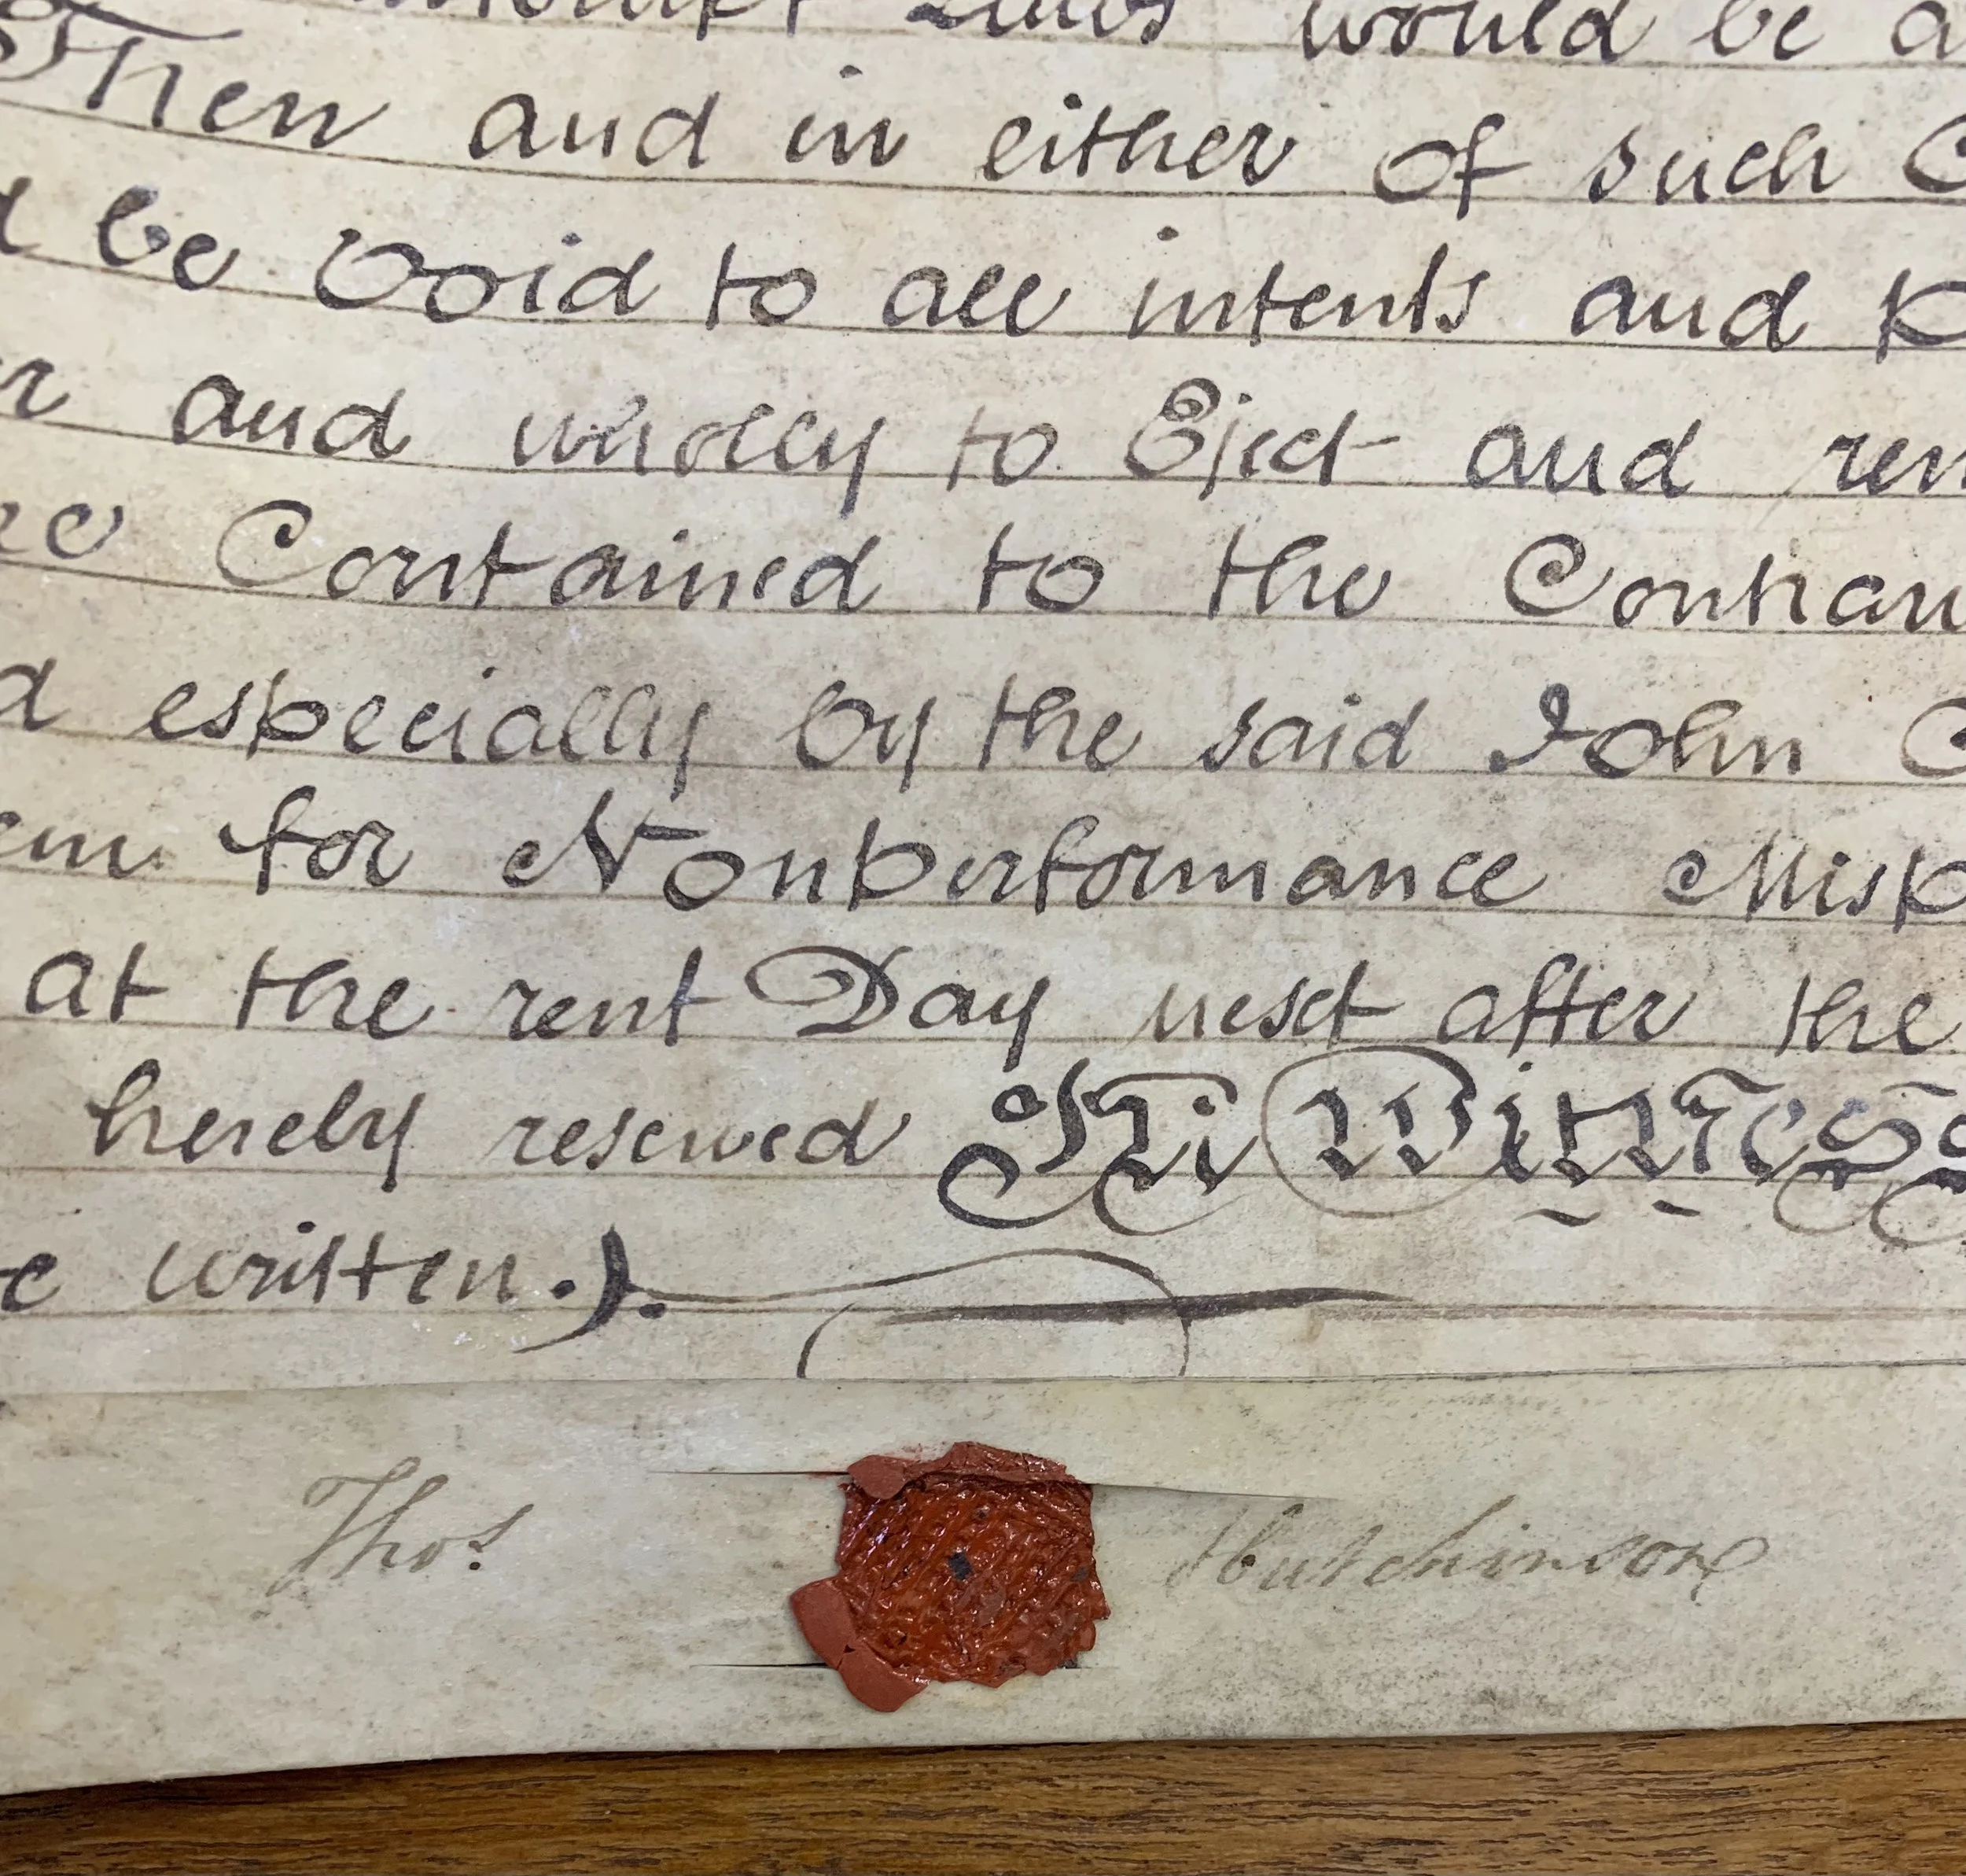 would be a
Then and in either of such C
d be Void to all intents and p
r and wholly to Eject and ren
Contained to the Contrary
d especially by the said John C
em for Nonperformance Misp
at the rent Day next after the
hereby reserved In Witness
e written.).
Thos Hutchinson